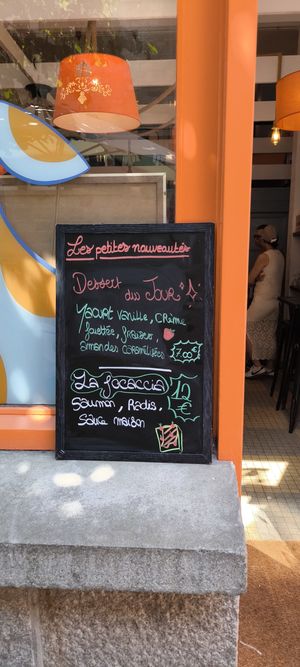 Les petites nouveautés
Dessert du Jour
Yaourt vanille, crème
fouettée, fraises,
amandes caramélisées
7.00€
La focaccia
12
€
Saumon, Radis,
Sauce maison